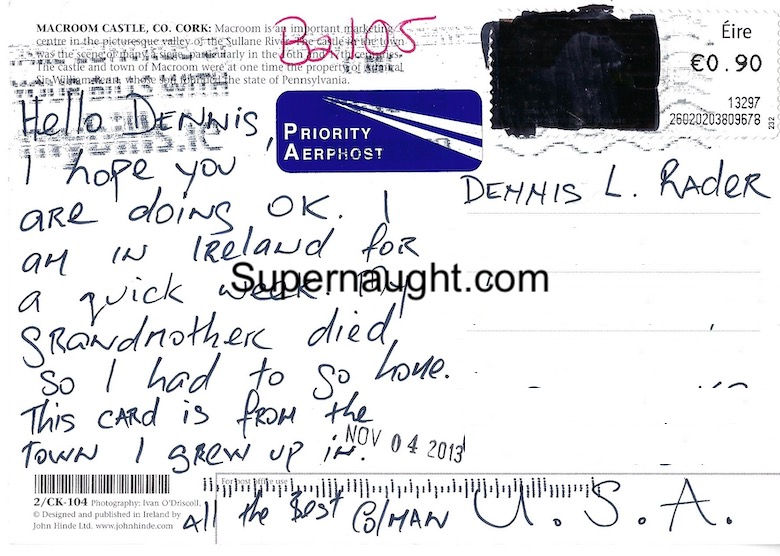 MACROOM CASTLE, CO. CORK: Macroom is an important marketing
centre in the picturesque valley of the Sullane River. The castle in the town
was the scene of many a siege, particularly in the 16th and 17th centuries.
The castle and town of Macroom were at one time the property of Admiral
Sir William Penn, whose son founded the state of Pennsylvania.
B2/05
Éire
€0.90
13297
26020203809678
232
PRIORITY
AERPHOST
Hello DENNIS,
I hope you
are doing OK. I
am in IReland for
a quick week. My
grandmother died,
so I had to go home.
This card is from the
town I grew up in.
DENNIS L. RADER
Supernaught.com
NOV 04 2013
For post office use
2/CK-104 Photography: Ivan O'Driscoll.
© Designed and published in Ireland by
John Hinde Ltd. www.johnhinde.com
All the Best Colman
U.S.A.